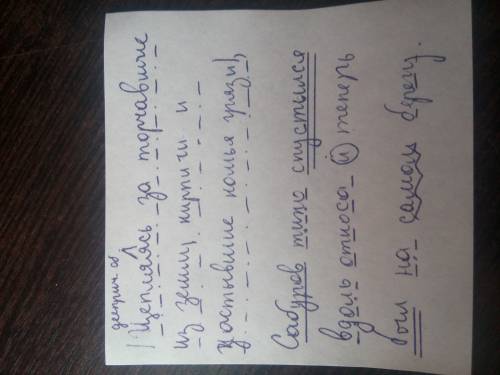 дееприч. об
|Щепляясь за торчавшие
из земли, кирпичи и
застывшие комья грязи|,
Сабуров тихо спустился
вдоль откоса и теперь
был на самом берегу.